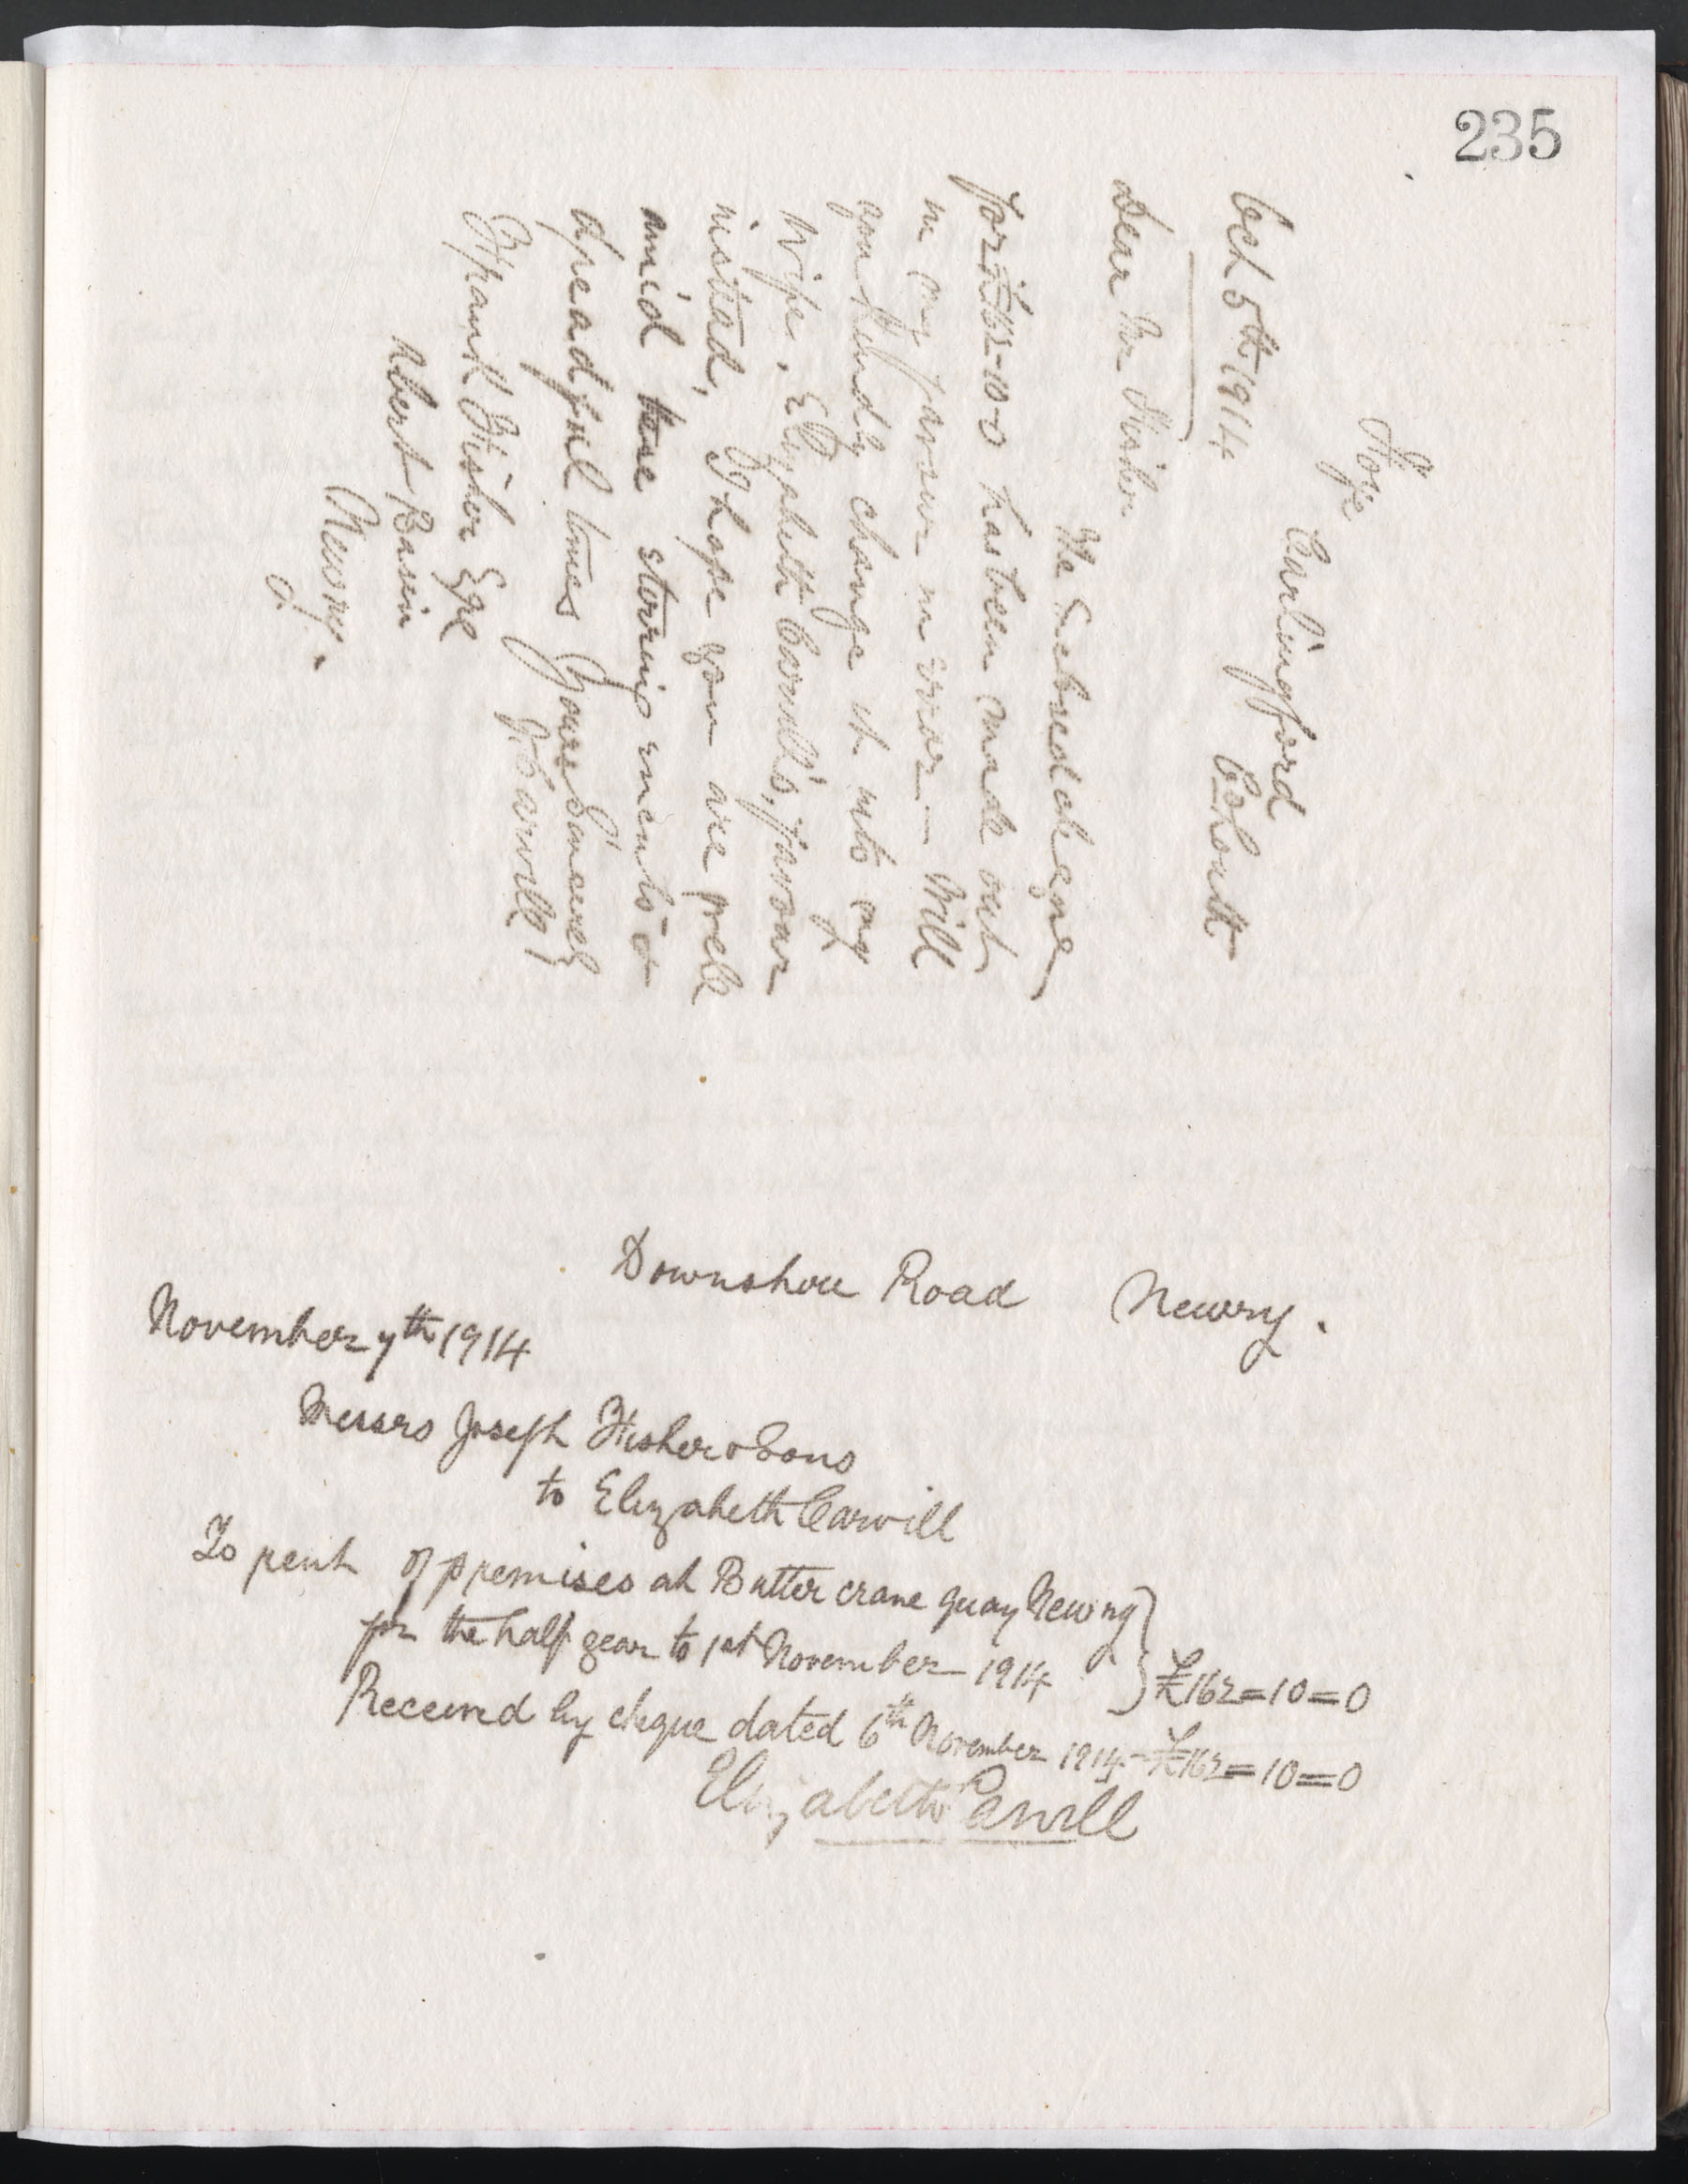 235
Foxe
Carlingford
Co Louth
Oct 5th 1914
Dear Mr Fisher
The Enclosed cheque
for £162-10-0 has been made out
in my favour in error — Will
you kindly change it into my
Wife, Elizabeth Carvill's, favour
instead, I hope you are well
amid these stirring events &
dreadful times Yours Sincerely
Carvill
Frank Fisher Esqe
Albert Basin
Newry.
Downshire Road Newry.
November 7th 1914
Messrs Joseph Fisher & Sons
to Elizabeth Carvill
To rent of premises at Butter crane quay Newry
for the half year to 1st November 1914 } £162=10=0
Received by cheque dated 6th November 1914 £162=10=0
Elizabeth Carvill